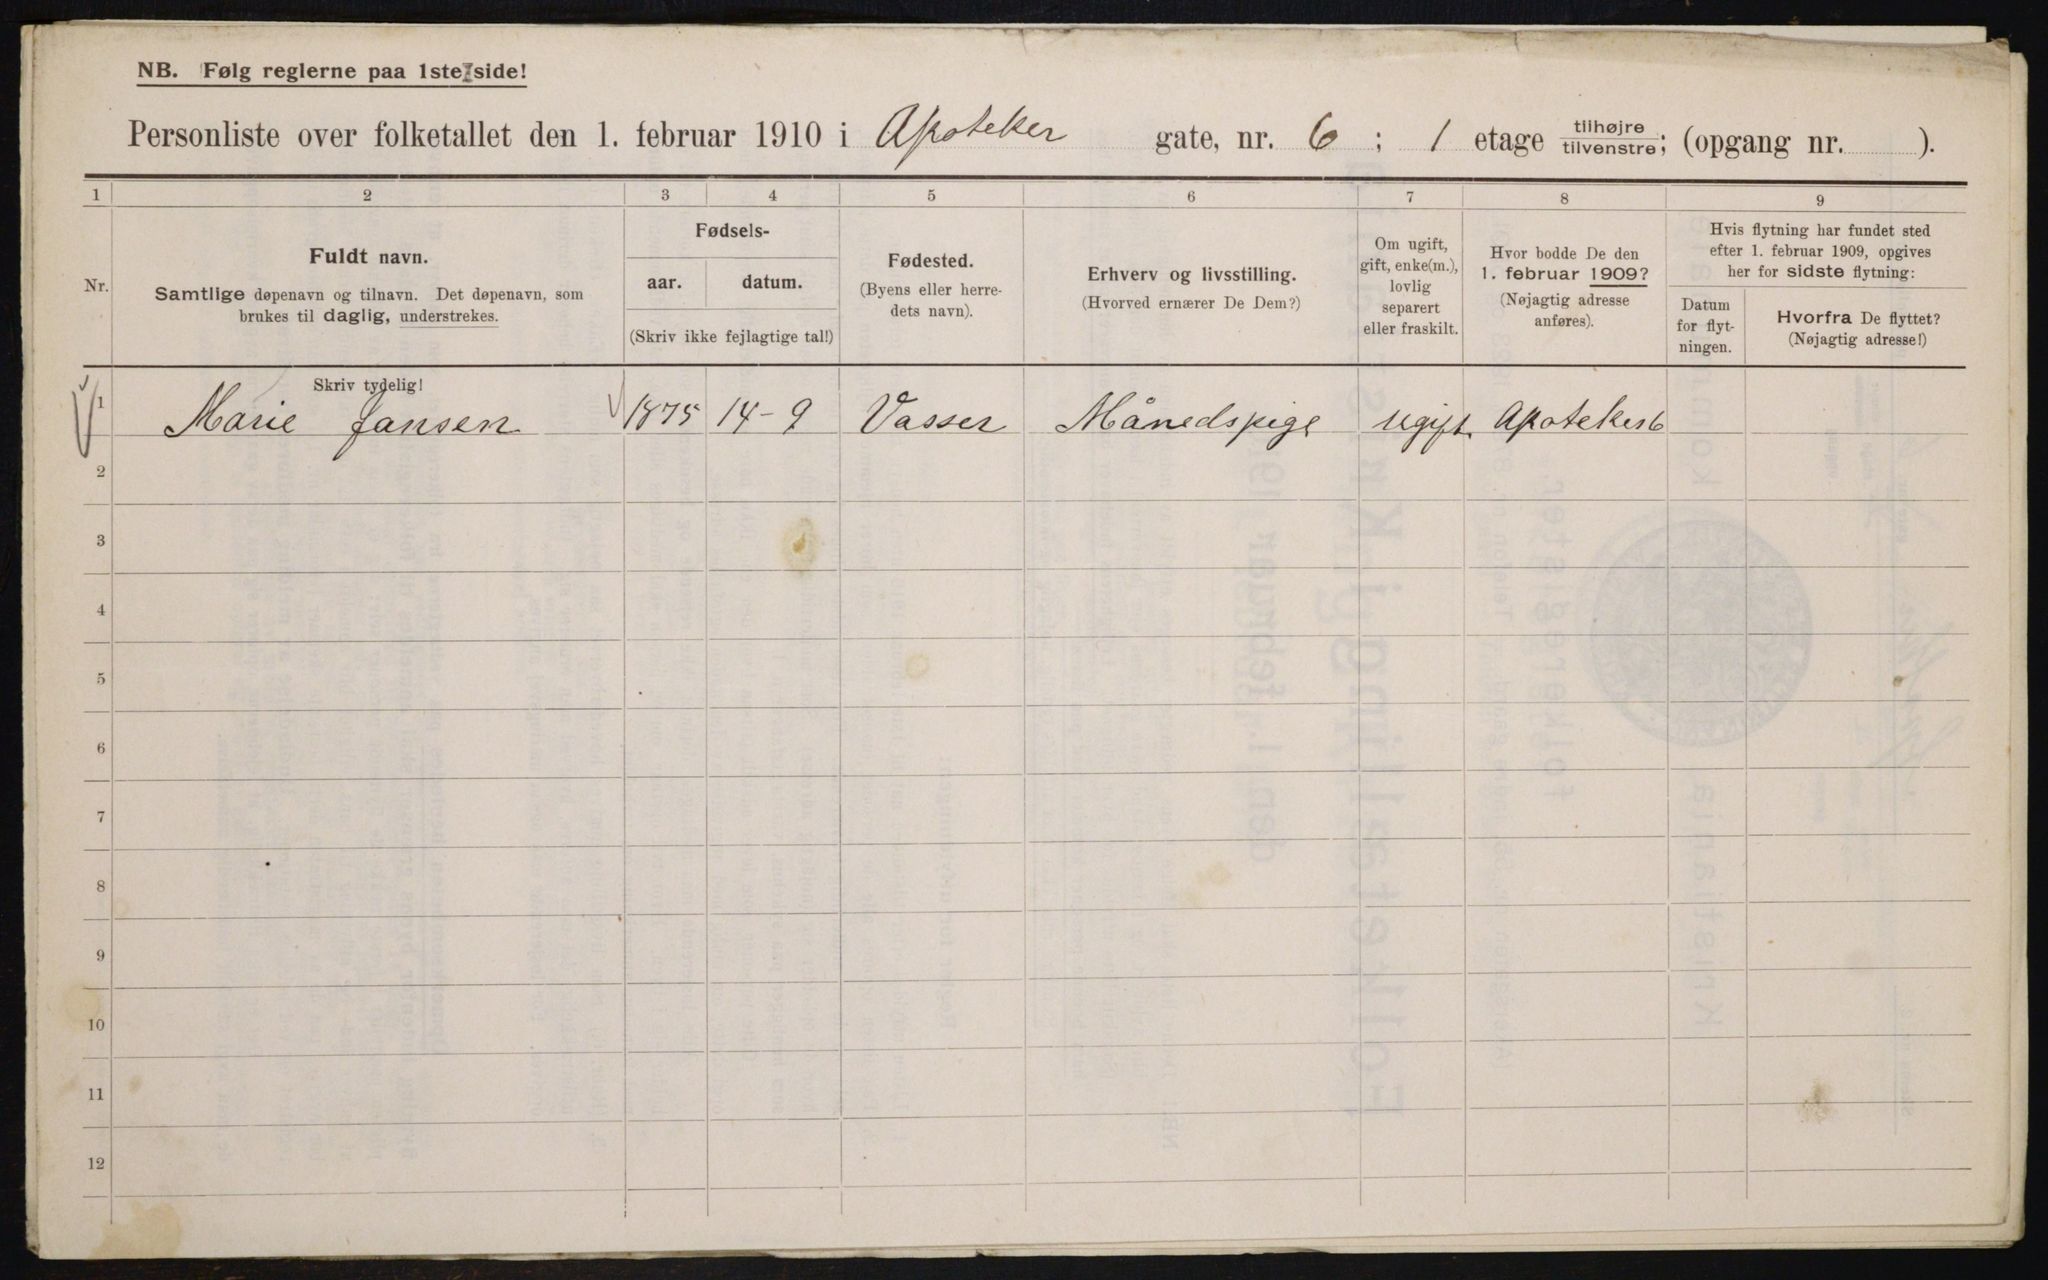 NB. Følg reglerne paa 1ste side!
Personliste over folketallet den 1. februar 1910 i Apoteker gate, nr. 6 ; 1 etage tilhøjre tilvenstre; (opgang nr. ).
1 2 3 4 5 6 7 8 9
Nr.
Fuldt navn.
Samtlige døpenavn og tilnavn. Det døpenavn, som
brukes til daglig, understrekes.
Fødsels-
aar. datum.
(Skriv ikke fejlagtige tal!)
Fødested.
(Byens eller herre-
dets navn).
Erhverv og livsstilling.
(Hvorved ernærer De Dem?)
Om ugift,
gift, enke(m.),
lovlig
separert
eller fraskilt.
Hvor bodde De den
1. februar 1909?
(Nøjagtig adresse
anføres).
Hvis flytning har fundet sted
efter 1. februar 1909, opgives
her for sidste flytning:
Datum
for flyt-
ningen.
Hvorfra De flyttet?
(Nøjagtig adresse!)
Skriv tydelig!
1 Marie Jansen 1875 14-9 Vasser Månedspige ugift. Apoteker 6
2
3
4
5
6
7
8
9
10
11
12